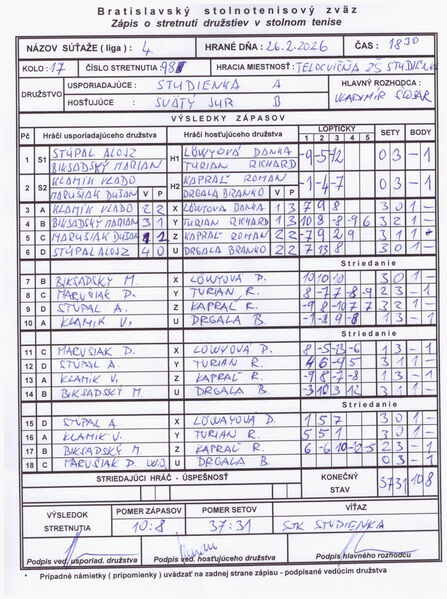 Bratislavský stolnotenisový zväz
Zápis o stretnutí družstiev v stolnom tenise
NÁZOV SÚŤAŽE ( liga ) : 4 HRANÉ DŇA : 26.2.2026 ČAS : 18 30
KOLO : 17 ČÍSLO STRETNUTIA : 98 HRACIA MIESTNOSŤ: TELOCVIČŇA ZŠ STUDIENKA
DRUŽSTVO USPORIADAJÚCE : STUDIENKA A HLAVNÝ ROZHODCA :
HOSŤUJÚCE : SVÄTÝ JUR B VLADIMÍR
VÝSLEDKY ZÁPASOV
Pč Hráči usporiadajúceho družstva Hráči hosťujúceho družstva LOPTIČKY SETY BODY
1 2 3 4 5
1 S1 STÚPAL ALOJZ H1 LÖWYOVÁ DANKA -9 -5 -12 0 3 - 1
BIKSADSKÝ MARIAN TURIAN RICHARD
2 S2 KLAMIK VLADO H2 KAPRAĽ ROMAN -1 -4 -7 0 3 - 1
MARUŠIAK DUŠAN V P DRGALA BRANKO V P
3 A KLAMIK VLADO 2 2 X LÖWYOVÁ DANKA 1 3 7 9 8 3 0 1 -
4 B BIKSADSKÝ MARIAN 3 1 Y TURIAN RICHARD 1 3 10 8 -8 -9 6 3 2 1 -
5 C MARUŠIAK DUŠAN Z KAPRAĽ ROMAN 2 2 -7 9 2 9 3 1 1
6 D STÚPAL ALOJZ 4 0 U DRGALA BRANKO 2 2 7 13 8 3 0 1 -
Striedanie
7 B BIKSADSKÝ M. X LÖWYOVÁ D. 10 10 10 3 0 1 -
8 C MARUŠIAK D. Y TURIAN R. 2 3 - 1
9 D STÚPAL A. Z KAPRAĽ R. 3 2 1 -
10 A KLAMIK V. U DRGALA B. -1 -8 9 -8 1 3 - 1
Striedanie
11 C MARUSIAK D. X LÖWYOVÁ D. 8 -5 -13 -6 1 3 - 1
12 D STÚPAL A. Y TURIAN R. 3 1 1 -
13 A KLAMIK V. Z KAPRAĽ R. -9 8 -7 -8 1 3 - 1
14 B BIKSADSKÝ M U DRGALA B. -3 10 3 12 3 1 1 -
Striedanie
15 D STUPAL A. X LÖWAYOVÁ D. 1 5 7 3 0 1 -
16 A KLAMIK V. Y TURIAN R. 5 5 1 3 0 1 -
17 B BIKSADSKÝ M. Z KAPRAĽ R. 6 -6 10 -12 -5 2 3 - 1
18 C MARUSIAK D. W.O. U DRGALA B. 0 3 - 1
STRIEDAJÚCI HRÁČ - ÚSPEŠNOSŤ KONEČNÝ STAV 37 31 10 8
VÝSLEDOK STRETNUTIA POMER ZÁPASOV POMER SETOV VÍŤAZ
10 : 8 37 : 31 STK STUDIENKA
Podpis ved. usporiad. družstva Podpis ved. hosťujúceho družstva Podpis hlavného rozhodcu
* Prípadné námietky ( pripomienky ) uvádzať na zadnej strane zápisu - podpísané vedúcim družstva